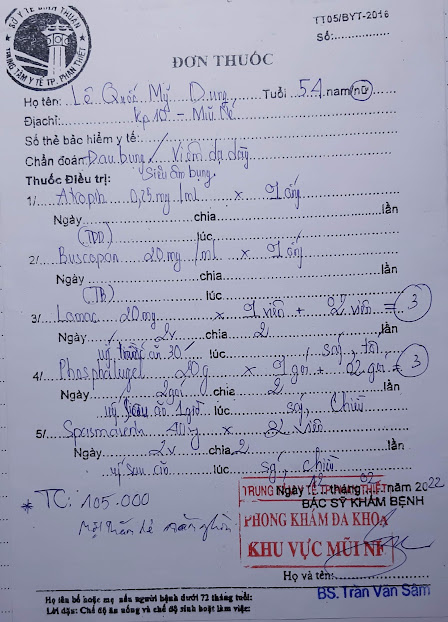 SỞ Y TẾ BÌNH THUẬN
TRUNG TÂM Y TẾ TP. PHAN THIẾT
TT05/BYT-2016
Số:
ĐƠN THUỐC
Họ tên: Lê Quốc Mỹ Dung Tuổi 54 nam/nữ
Địachỉ: Kp 10 - Mũi Né
Số thẻ bảo hiểm y tế:
Chẩn đoán: Đau bụng / Viêm dạ dày
Siêu âm bụng
Thuốc Điều trị:
1/ 0,25 mg /ml x 1 ống
Ngày chia lần
(TDD) lúc
2/ Buscopan 20 mg /ml x 1 ống
Ngày chia lần
(TB) lúc
3/ 20 mg x 1 viên + 02 viên = 3
Ngày 2v chia 2 lần
uống trước ăn 30' lúc sáng, tối
4/ Phosphalugel 20g x 1 gói + 02 gói = 3
Ngày 2 gói chia 2 lần
uống sau ăn 1 giờ lúc sáng, chiều
5/ Spasmaverin 40 mg x 2 viên
Ngày 2v chia 2 lần
uống sau lúc sg, chiều
* TC: 105.000
Một trăm lẻ năm nghìn
Ngày tháng 02 năm 2022
TRUNG TÂM Y TẾ TP. PHAN THIẾT
BÁC SỸ KHÁM BỆNH
PHÒNG KHÁM ĐA KHOA
KHU VỰC MŨI NÉ
Họ và tên:
BS. Trần Văn Sâm
Họ tên bố hoặc mẹ nếu người bệnh dưới 72 tháng tuổi:
Lời dặn: Chế độ ăn uống và chế độ sinh hoạt làm việc: